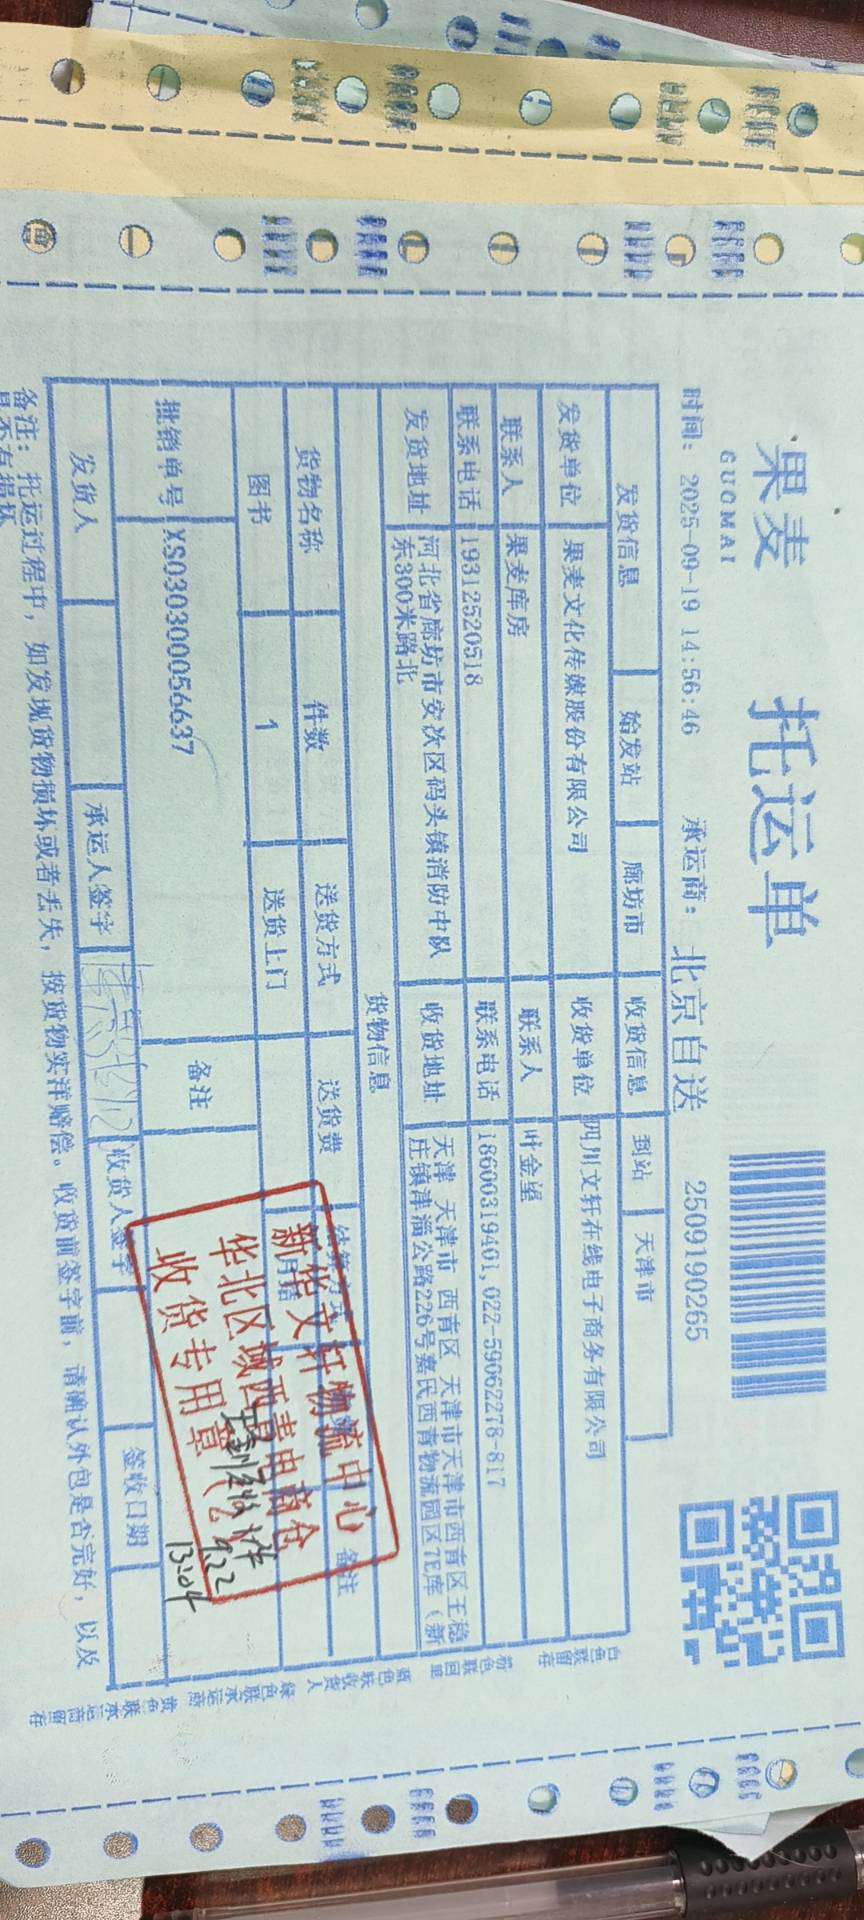 果麦
GUOMAI
托运单
时间：2025-09-19 14:56:46 承运商：北京自送 2509190265
发货信息 始发站 廊坊市 收货信息 到站 天津市
发货单位 果麦文化传媒股份有限公司 收货单位 四川文轩在线电子商务有限公司
联系人 果麦库房 联系人 叶金望
联系电话 19312520518 联系电话 18600319401,022-59062278-817
发货地址 河北省廊坊市安次区码头镇消防中队
东300米路北
收货地址 天津 天津市 西青区 天津市天津市西青区王稳
庄镇津淄公路226号嘉民西青物流园区7E库（新
货物信息
货物名称 件数 送货方式 送货费 结算方式 备注
图书 1 送货上门 月结
批销单号 XS030300056637 备注
发货人 承运人签字 收货人签字 签收日期
备注：托运过程中，如发现货物损坏或者丢失，按货物实洋赔偿。收货前签字前，请确认外包是否完好，以及
是否有损坏
新华文轩物流中心
华北区域西麦电商仓
收货专用章
9.22
13:04
白色联留存 粉色联回单 蓝色联收货人 绿色联承运商 黄色联承运商留存